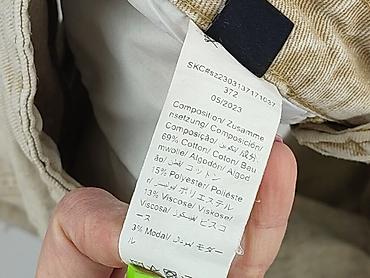 SKC#sz2303137171037
372
05/2023
Composition/ Zusamme
nsetzung/ Composición/
Composição/ تكوين/ 成分
69% Cotton/ Coton/ Bau
mwolle/ Algodón/ Algod
ão/ قطن/ コットン
15% Polyester/ Poliéste
r/ بوليستر/ ポリエステル
13% Viscose/ Viskose/
Viscosa/ فيسكوز/ ビスコ
ース
3% Modal/ مودال/ モダー
ル